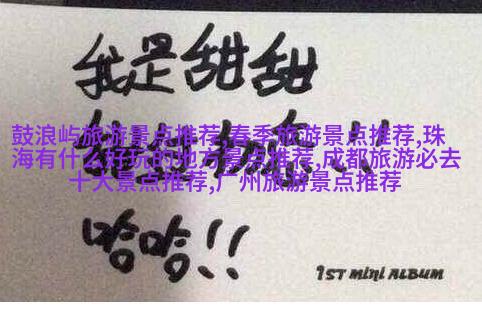 我是甜甜
鼓浪屿旅游景点推荐,春季旅游景点推荐,珠
海有什么好玩的地方景点推荐,成都旅游必去
十大景点推荐,广州旅游景点推荐
哈哈!!
1ST mini ALBUM